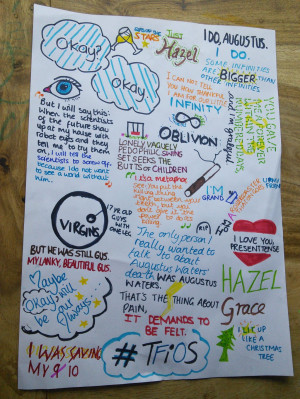 Okay?
Okay
STARS
JUST
Hazel
I DO, AUGUSTUS.
I DO.
SOME INFINITIES
ARE BIGGER THAN
OTHER INFINITIES
I CAN NOT TELL
YOU HOW THANKFUL
I AM FOR OUR LITTLE
INFINITY
YOU GAVE
ME A FOREVER
WITHIN THE
NUMBERED DAYS
and i'm grateful
But I will say this:
When the scientists
of the future show
up at my house with
robot eyes and they
tell me to try them
on, I will tell the
scientists to screw off,
because I do not want
to see a world without
him...
OBLIVION
LONELY, VAGUELY
PEDOPHILIC SWING
SET SEEKS THE
BUTTS OF CHILDREN
It's a metaphor
See: You put the
killing thing
right between your
teeth, but you
don't give it the
power to do its
killing
I'M
GRAND
VIRGINS
17 YR OLD
GUYS
WITH ONE LEG
I LOVE YOU
PRESENT TENSE
The only person I
really wanted to
talk to about
Augustus Waters'
death WAS AUGUSTUS
WATERS.
BUT HE WAS STILL GUS.
MY LANKY, BEAUTIFUL GUS.
Maybe
Okay will
be our
always
THAT'S THE THING ABOUT
PAIN,
IT DEMANDS TO
BE FELT.
HAZEL
Grace
I LIT UP
LIKE A
CHRISTMAS
TREE
I WAS SAVING
MY 10
# TFiOS